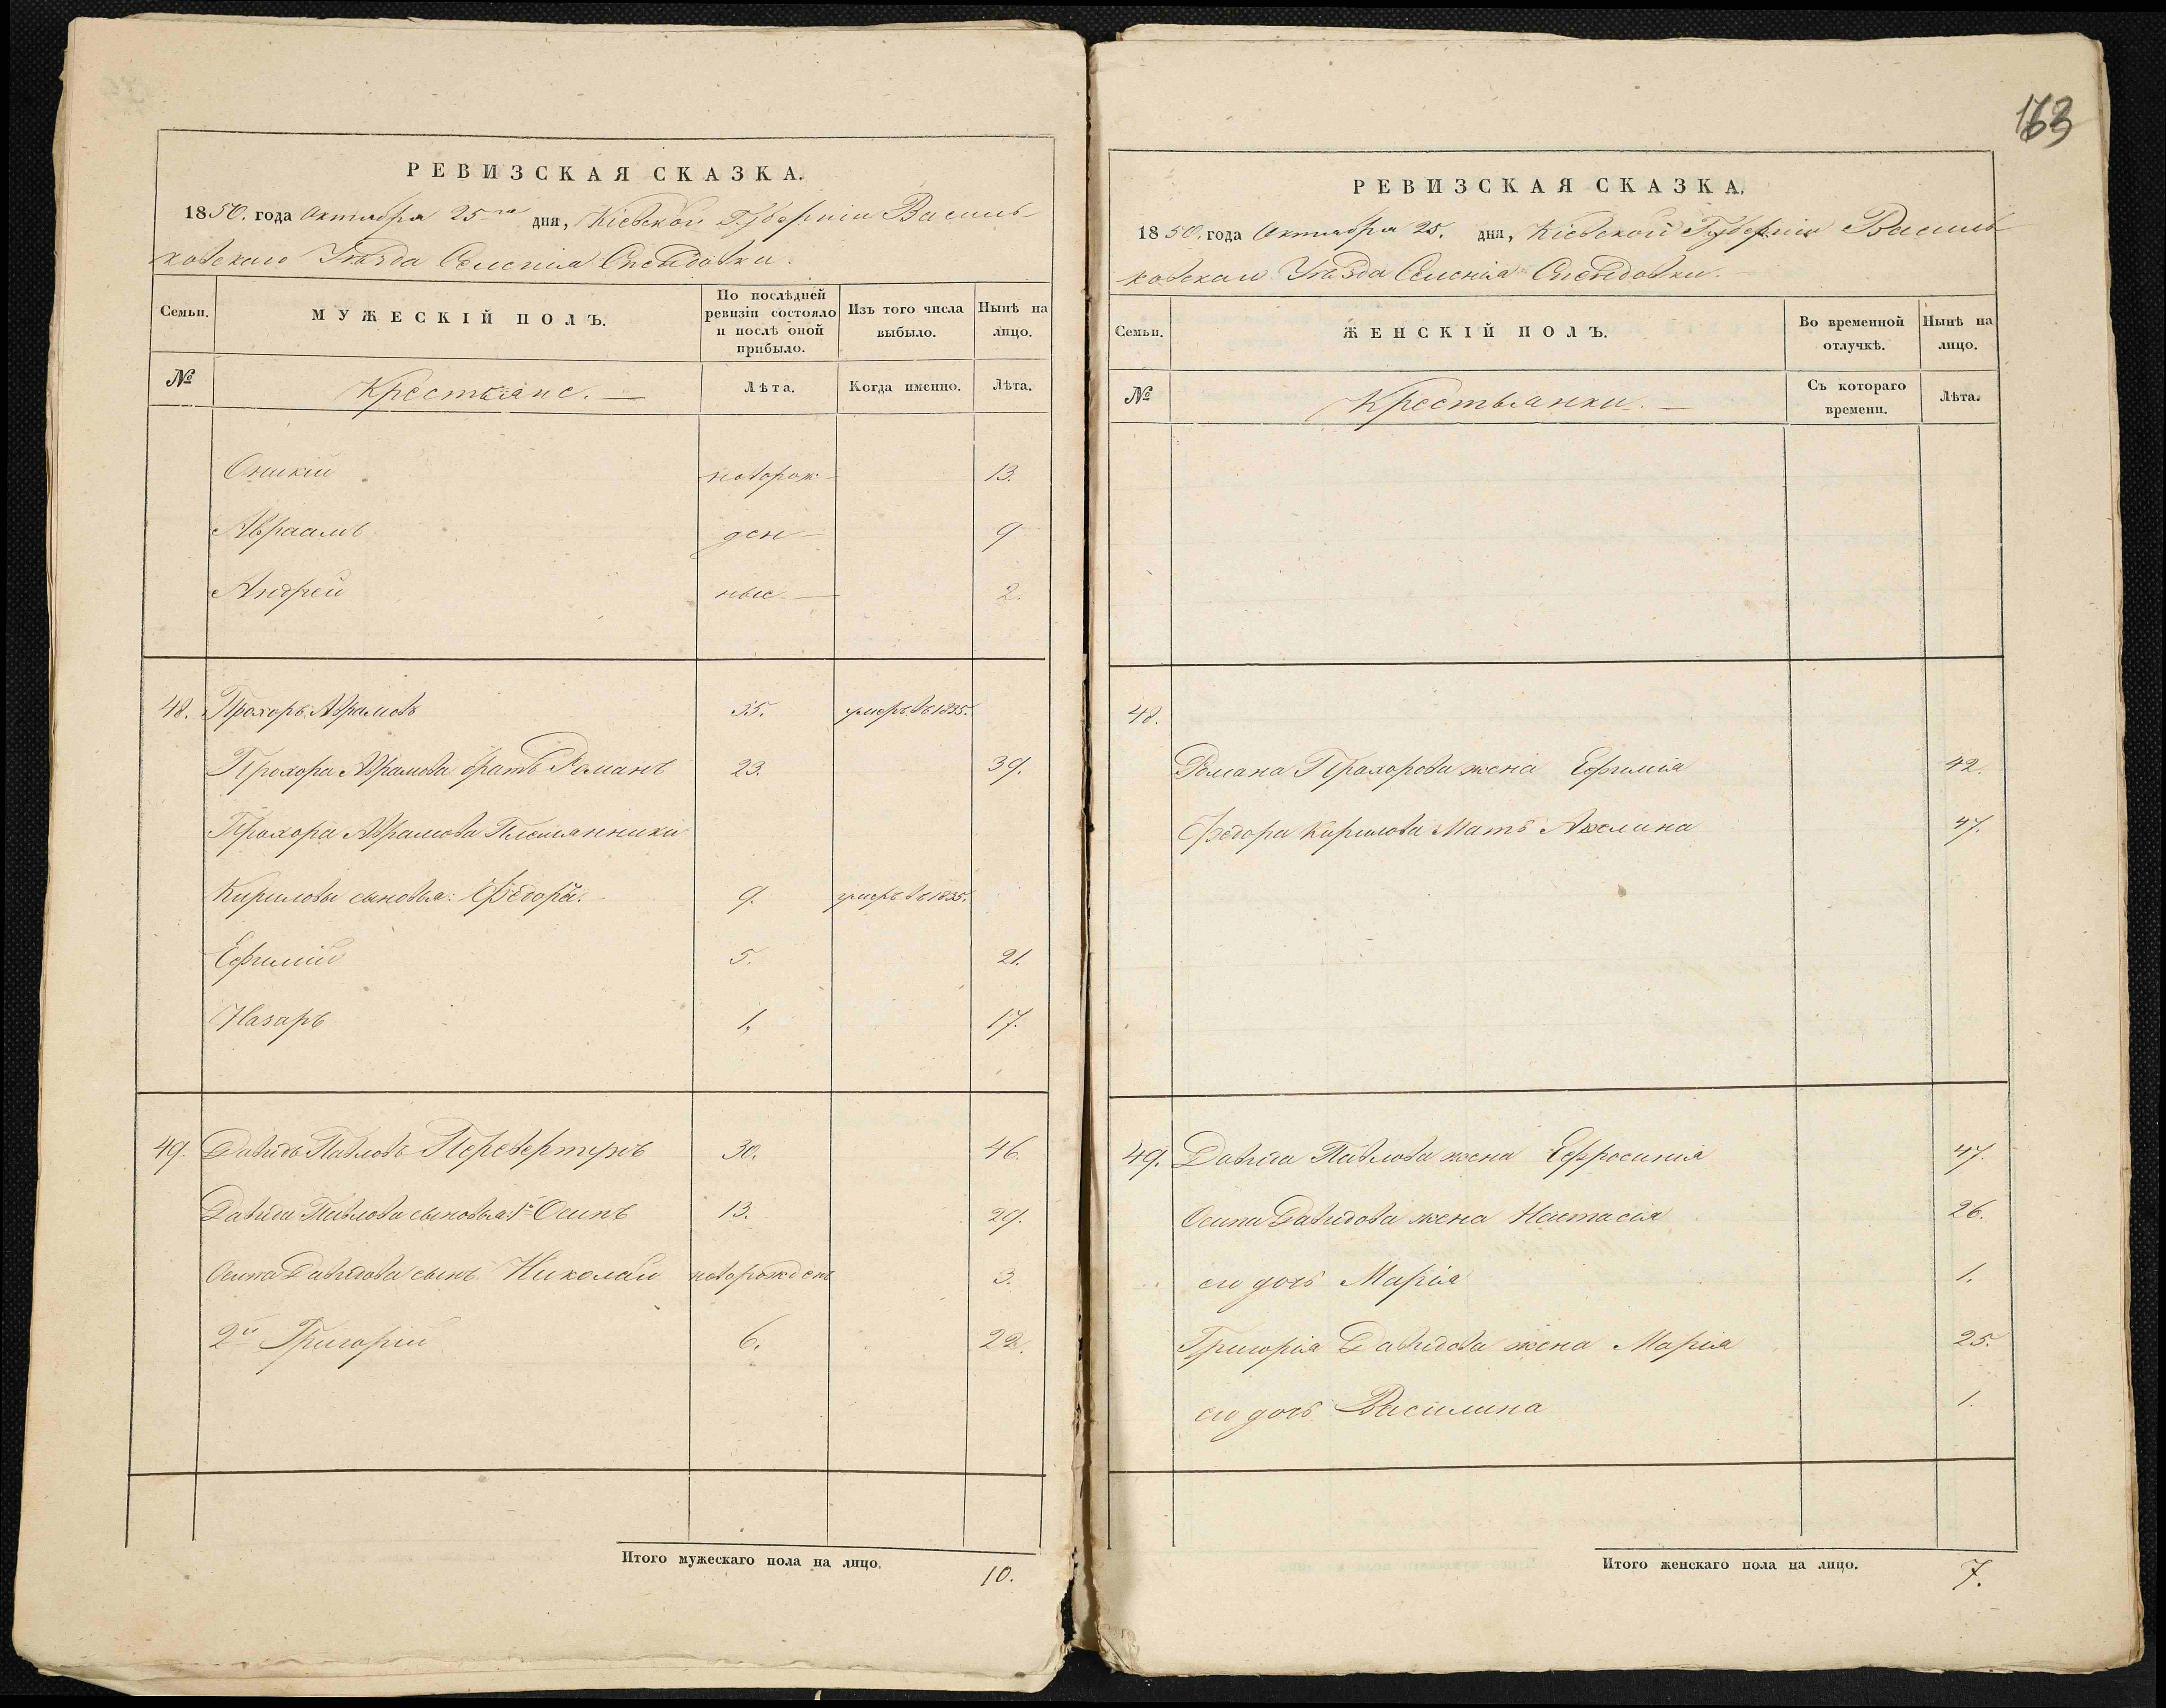 163
РЕВИЗСКАЯ СКАЗКА.
1850. года Октября 25го дня, Кіевской Губерніи Василь-
ковскаго Уѣзда Селенія
Семьи.
МУЖЕСКІЙ ПОЛЪ.
По послѣдней ревизіи состояло и послѣ оной прибыло.
Изъ того числа выбыло.
Нынѣ на лицо.
№
Крестьяне.
Лѣта.
Когда именно.
Лѣта.
Оникій новорож- 13.
Авраамъ ден- 9
Андрей ные. 2.
48. Прохоръ Аврамовъ 35. умеръ въ 1835.
Прохора Аврамова братъ Романъ 23. 39.
Прохора Аврамова Племянники
Кирилови сыновья: Ѳедоръ. 9. умеръ въ 1835.
Ефимій 5. 21.
Назаръ 1. 17.
49. Давидъ Павловъ Перевертунъ 30. 46.
Давида Павлова сыновья: 1й Осипъ 13. 29.
Осипа Давидова сынъ Николай новорожденъ 3.
2й Григорій 6. 22.
Итого мужескаго пола на лицо.
10.
РЕВИЗСКАЯ СКАЗКА.
1850. года Октября 25. дня, Кіевской Губерніи Василь-
ковскаго Уѣзда Селенія
Семьи.
ЖЕНСКІЙ ПОЛЪ.
Во временной отлучкѣ.
Нынѣ на лицо.
№
Крестьянки.
Съ котораго времени.
Лѣта.
48.
Романа Прохорова жена Ефимія 42.
Ѳедора Кирилова Мать Акелина 47.
49. Давида Павлова жена Ефросинія 47.
Осипа Давидова жена Настасія 26.
его дочь Марія 1.
Григорія Давидова жена Марія 25.
его дочь Василина 1.
Итого женскаго пола на лицо.
7.